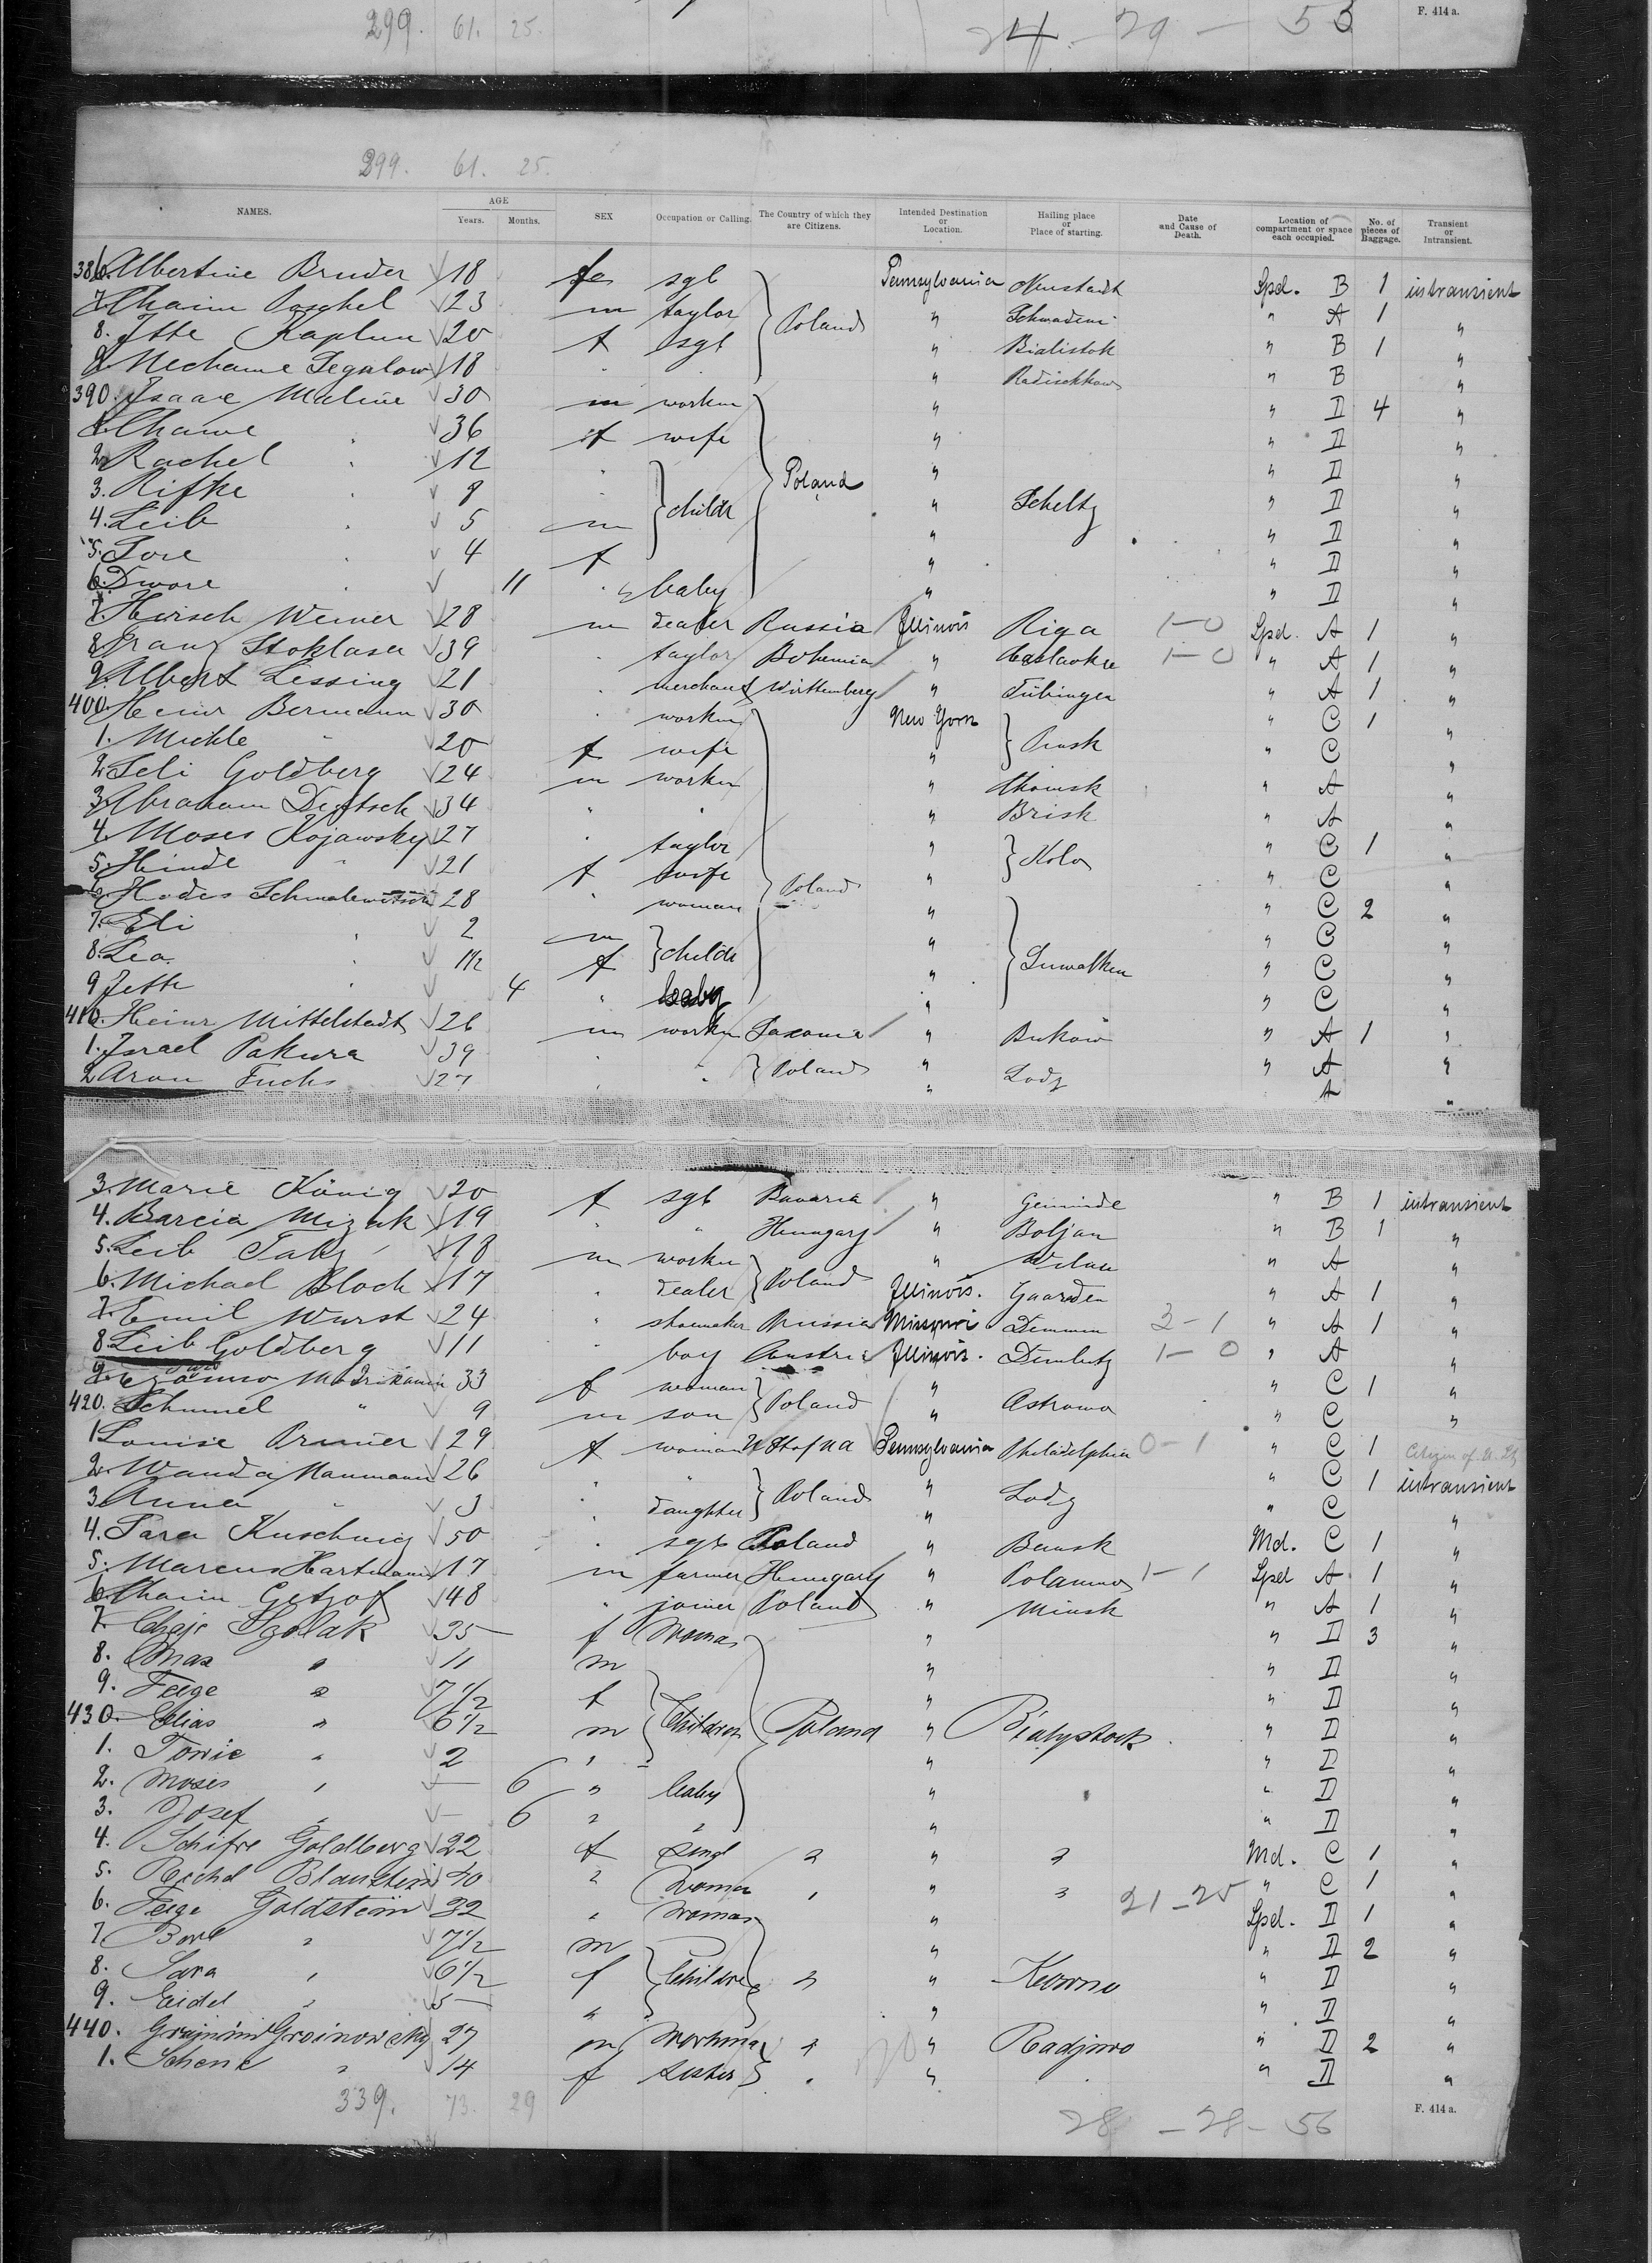 299. 61. 25. 24 - 29 - 53 F. 414 a.
299. 61. 25.
NAMES. AGE Years. Months. SEX Occupation or Calling. The Country of which they are Citizens. Intended Destination or Location. Hailing place or Place of starting. Date and Cause of Death. Location of compartment or space each occupied. No. of pieces of Baggage. Transient or Intransient.
386. Albertine Bruder 18 f sgl Pennsylvania Neustadt Spd. B 1 intransient
7. Chaim 23 m taylor Poland " " A 1 "
8. Itte Kaplun 20 f sgl " Bialistok " B 1 "
9. Nechame Segalow 18 " " " " B "
390. Isaac Maline 30 m worker " " D 4 "
1. Chawe " 36 f wife " " D "
2. Rachel " 12 " Poland " " D "
3. Rifke " 8 " childr " Scheltz " D "
4. Leib " 5 m " " D "
5. Sore " 4 f " " D "
6. Dwore " 11 " baby " " D "
7. Hirsch Weiner 28 m dealer Russia Illinois Riga 1-0 Spd. A 1 "
8. Franz Stoklasa 39 " taylor Bohemia " 1-0 " A 1 "
9. Albert Lessing 21 " merchant Württemberg " Tübingen " A 1 "
400. Heinr Bermann 30 " worker New York " C 1 "
1. Michle " 20 f wife " Pinsk " C "
2. Seli Goldberg 24 m worker " Chomsk " A "
3. Abraham 34 " " " Brisk " A "
4. Moses Kojawsky 27 " taylor " Kolo " C 1 "
5. Hinde " 21 f wife Poland " " C "
6. Hodes 28 " woman " " C 2 "
7. Eli " 2 m " " C "
8. Lea " 1½ f childr " Suwalken " C "
9 Jette " 4 " baby " " C "
410. Heinr Mittelstadt 26 m worker Saxonia " Bukow " A 1 "
1. Israel Pakura 39 " " Poland " Lodz " A "
2 Aron Fuchs 27 " " " A "
3. Marie König 20 f sgl Bavaria " Gemünde " B 1 intransient
4. Barcia Mizak 19 " " Hungary " Boljan " B 1 "
5. Leib 18 m worker " Wilna " A "
6. Michael Bloch 17 " dealer Poland Illinois. Gaarden " A 1 "
7. Emil Wurst 24 " shoemaker Prussia Missouri Demmin 2-1 " A 1 "
8. Leib Goldberg 11 " boy Austria Illinois. 1-0 " A "
9. 33 f woman Poland " Ostrowo " C 1 "
420. Schmuel " 9 m son " " C "
1. Louise 29 f woman U St of N A Pennsylvania Philadelphia 0-1 " C 1 Citizen of U. St
2. Wanda Naumann 26 " " Poland " Lodz " C 1 intransient
3. Anna " 3 " daughter " " C "
4. Sara Kuschnig 50 " sgl Poland " Bausk Md. C 1 "
5. Marcus Hartmann 17 m farmer Hungary " 1-1 Spd A 1 "
6. Chaim Getzof 48 " joiner Poland " Minsk " A 1 "
7. Chaje Szolak 35 f Woman " " D 3 "
8. Max " 11 m " " D "
9. Feige " 7½ f " " D "
430. Elias " 6½ m Children Poland " Bialystock " D "
1. Towie " 2 " " " D "
2. Moses " 6 " baby " " D "
3. Josef " 6 " " " " D "
4. Schifre Goldberg 22 f Singl " " " Md. C 1 "
5. Rachel 40 " Woman " " " 21-25 " C 1 "
6. Feige Goldstein 32 " Woman " Spd. D 1 "
7 " 7½ m " " D 2 "
8. Sara " 6½ f Children " " Kowno " D "
9. Eidel " 5 " " " D "
440. Groinowsky 27 m Workman " " Radziwo " D 2 "
1. Schene " 14 f Sister " " " D "
339. 73. 29 28 - 28 - 56 F. 414 a.